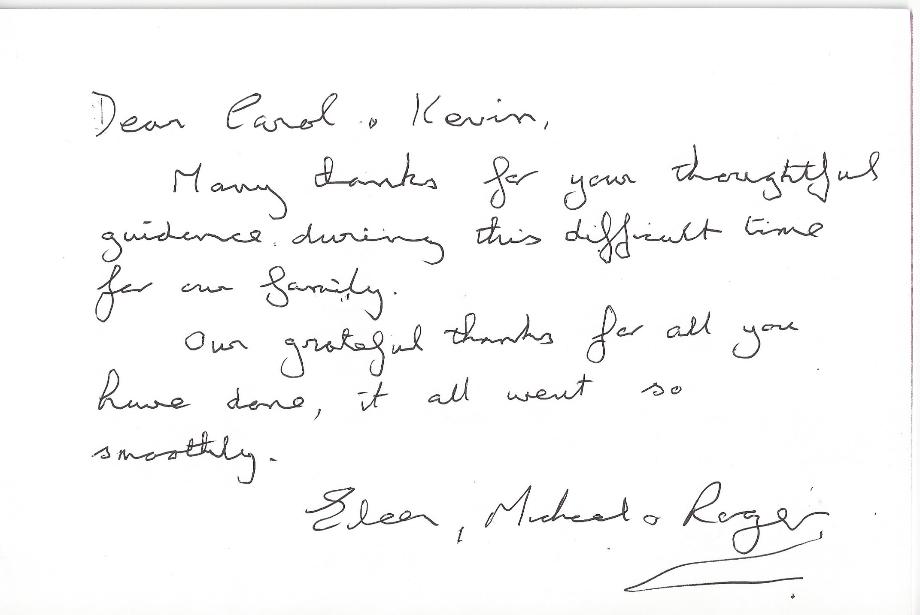 Dear Carol & Kevin,
Many thanks for your thoughtful
guidance during this difficult time
for our family.
Our grateful thanks for all you
have done, it all went so
smoothly.
Eileen, Michael & Roger